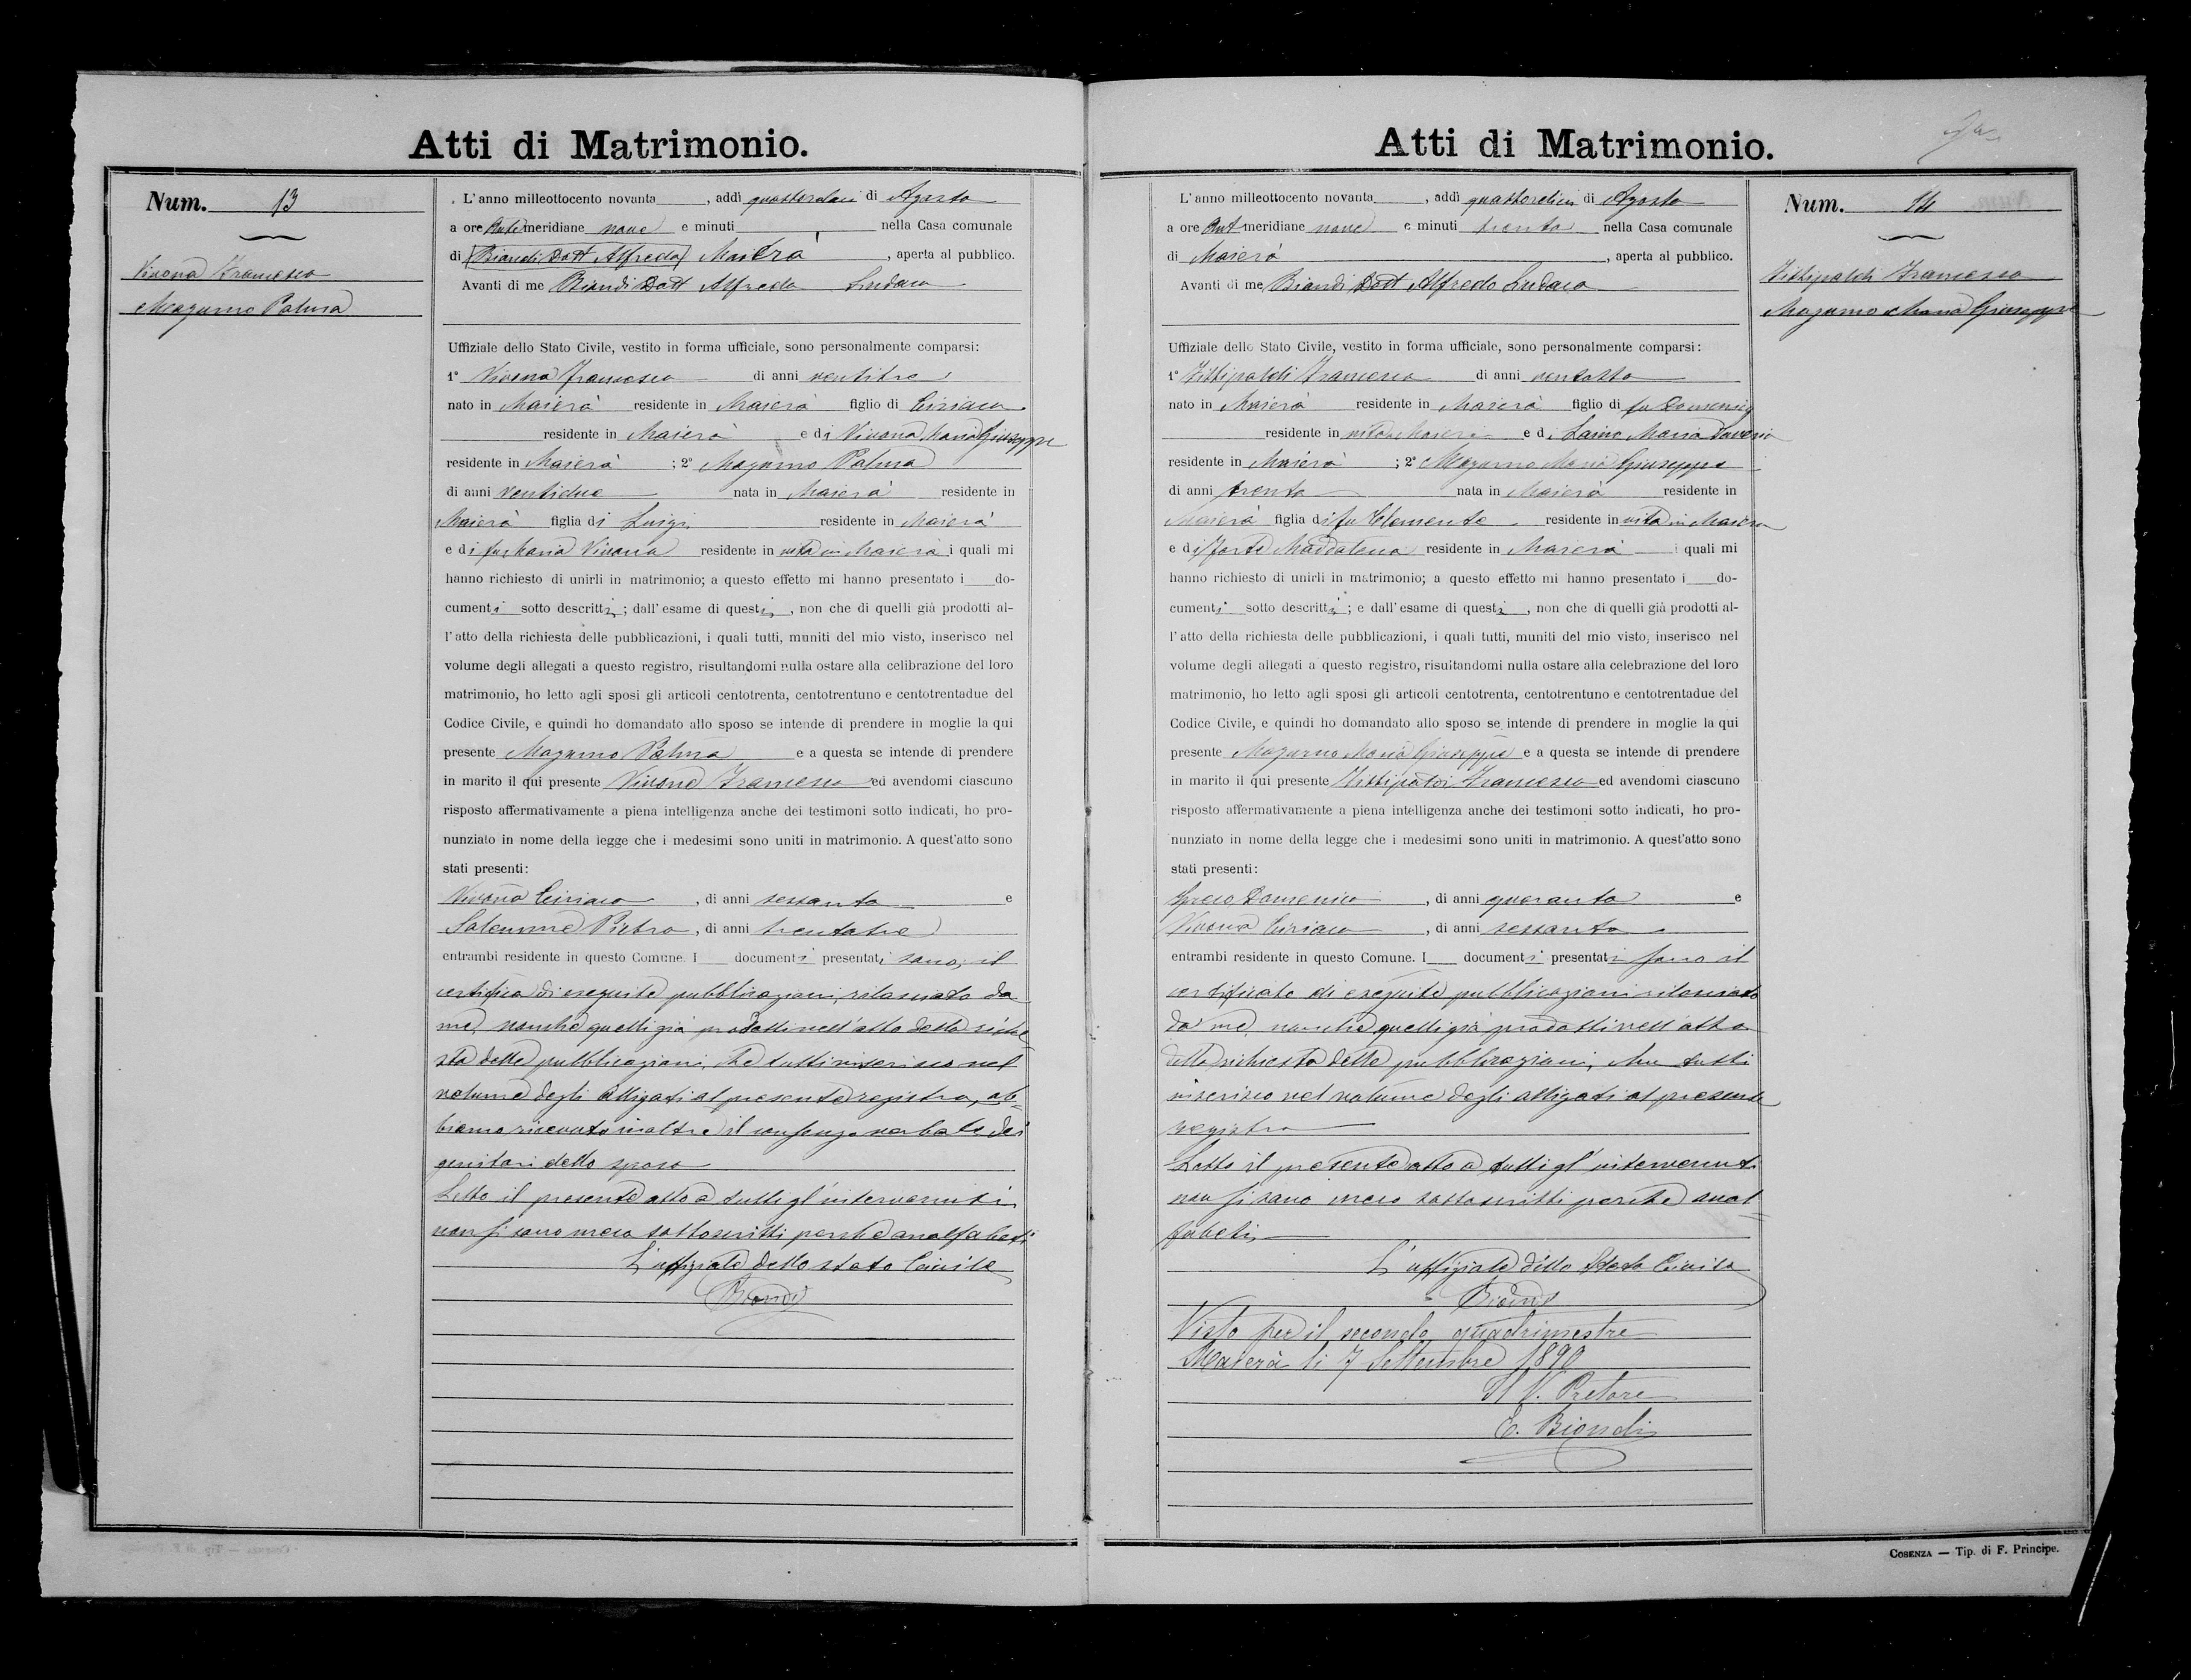 Atti di Matrimonio.
Num. 13
Vivona Francesco
Magurno Palma
L'anno milleottocento novanta, addì quattordici di Agosto
a ore Antemeridiane nove e minuti nella Casa comunale
di (Biondi Dott Alfredo) Maierà, aperta al pubblico.
Avanti di me Biondi Dott Alfredo Sindaco
Uffiziale dello Stato Civile, vestito in forma ufficiale, sono personalmente comparsi:
1° Vivona Francesco di anni ventitre,
nato in Maierà residente in Maierà figlio di Ciriaco
residente in Maierà e di Vivona Maria Giuseppe
residente in Maierà ; 2° Magurno Palma
di anni ventidue nata in Maierà residente in
Maierà figlia di Luigi residente in Maierà
e di fu Maria Vivona residente in vita in Maierà i quali mi
hanno richiesto di unirli in matrimonio; a questo effetto mi hanno presentato i do-
cumenti sotto descritti; dall'esame di questi, non che di quelli già prodotti al-
l'atto della richiesta delle pubblicazioni, i quali tutti, muniti del mio visto, inserisco nel
volume degli allegati a questo registro, risultandomi nulla ostare alla celibrazione del loro
matrimonio, ho letto agli sposi gli articoli centotrenta, centotrentuno e centotrentadue del
Codice Civile, e quindi ho domandato allo sposo se intende di prendere in moglie la qui
presente Magurno Palma e a questa se intende di prendere
in marito il qui presente Vivona Francesco ed avendomi ciascuno
risposto affermativamente a piena intelligenza anche dei testimoni sotto indicati, ho pro-
nunziato in nome della legge che i medesimi sono uniti in matrimonio. A quest'atto sono
stati presenti:
Vivona Ciriaco, di anni sessanta e
Salemme Pietro, di anni trentatre
entrambi residente in questo Comune. I documenti presentati sono, il
certifica di eseguite pubblicazioni, rilasciato da
me, nonchè quelli già prodotti nell'atto della richie
sta delle pubblicazioni, che tutti inserisco nel
volume degli alligati al presente registro, ab=
biamo ricevuto inoltre il consenzo verbale dei
genitori dello sposo
Letto il presente atto a tutti gl'intervenuti
non si sono meco sottoscritti perchè analfabeti
L'uffiziale dello stato Civile
Biondi
Atti di Matrimonio.
Num. 14
Fittipaldi Francesco
Magurno Maria Giuseppe
L'anno milleottocento novanta, addì quattordici di Agosto
a ore Ant meridiane nove e minuti trenta nella Casa comunale
di Maierà, aperta al pubblico.
Avanti di me Biondi Dott Alfredo Sindaco
Uffiziale dello Stato Civile, vestito in forma ufficiale, sono personalmente comparsi:
1° Fittipaldi Francesco di anni ventotto
nato in Maierà residente in Maierà figlio di fu Domenico
residente in vita Maierà e di Laino Maria
residente in Maierà ; 2° Magurno Maria Giuseppe
di anni trenta nata in Maierà residente in
Maierà figlia di fu Clemente residente in vita in Maierà
e di Forte Maddalena residente in Maierà i quali mi
hanno richiesto di unirli in matrimonio; a questo effetto mi hanno presentato i do-
cumenti sotto descritti; e dall'esame di questi, non che di quelli già prodotti al-
l'atto della richiesta delle pubblicazioni, i quali tutti, muniti del mio visto, inserisco nel
volume degli allegati a questo registro, risultandomi nulla ostare alla celebrazione del loro
matrimonio, ho letto agli sposi gli articoli centotrenta, centotrentuno e centotrentadue del
Codice Civile, e quindi ho domandato allo sposo se intende di prendere in moglie la qui
presente Magurno Maria Giuseppe e a questa se intende di prendere
in marito il qui presente Fittipaldi Francesco ed avendomi ciascuno
risposto affermativamente a piena intelligenza anche dei testimoni sotto indicati, ho pro-
nunziato in nome della legge che i medesimi sono uniti in matrimonio. A quest'atto sono
stati presenti:
Greco Domenico, di anni quaranta e
Vivona Ciriaco, di anni sessanta
entrambi residente in questo Comune. I documenti presentati sono il
certificato di eseguite pubblicazioni rilasciato
da me, nonchè quelli già prodotti nell'atto
della richiesta delle pubblicazioni, che tutti
inserisco nel volume degli alligati al presente
registro
Letto il presente atto a tutti gl'intervenuti
non si sono meco sottoscritti perchè anal=
fabeti,
L'uffiziale dello Stato Civile
Biondi
Visto per il secondo quadrimestre
Maierà li 7 Settembre 1890
Il V. Pretore
E. Biondi
Cosenza — Tip. di F. Principe.